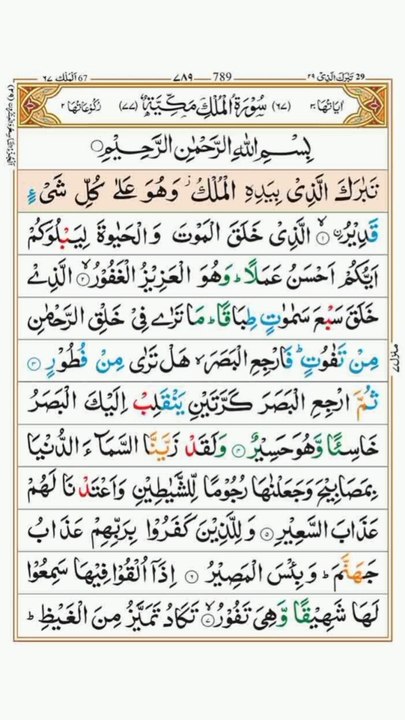 29 تَبٰرَكَ الَّذِىْ ٢٩ 789 ٧٨٩ 67 اَلْمُلْكُ ٦٧
اٰيَاتُهَا ٣٠ (٦٧) سُوْرَةُ الْمُلْكِ مَكِّيَّةٌ (٧٧) رُكُوْعَاتُهَا ٢
بِسْمِ اللهِ الرَّحْمٰنِ الرَّحِيْمِ
تَبٰرَكَ الَّذِىْ بِيَدِهِ الْمُلْكُ ز وَهُوَ عَلٰى كُلِّ شَىْءٍ
قَدِيْرُ ۨ ۙ ﴿١﴾ الَّذِىْ خَلَقَ الْمَوْتَ وَالْحَيٰوةَ لِيَبْلُوَكُمْ
اَيُّكُمْ اَحْسَنُ عَمَلًا ؕ وَهُوَ الْعَزِيْزُ الْغَفُوْرُ ۙ ﴿٢﴾ الَّذِىْ
خَلَقَ سَبْعَ سَمٰوٰتٍ طِبَاقًا ؕ مَا تَرٰى فِىْ خَلْقِ الرَّحْمٰنِ
مِنْ تَفٰوُتٍ ؕ فَارْجِعِ الْبَصَرَ ۙ هَلْ تَرٰى مِنْ فُطُوْرٍ ﴿٣﴾
ثُمَّ ارْجِعِ الْبَصَرَ كَرَّتَيْنِ يَنْقَلِبْ اِلَيْكَ الْبَصَرُ
خَاسِئًا وَّهُوَ حَسِيْرٌ ﴿٤﴾ وَلَقَدْ زَيَّنَّا السَّمَآءَ الدُّنْيَا
بِمَصَابِيْحَ وَجَعَلْنٰهَا رُجُوْمًا لِّلشَّيٰطِيْنِ وَاَعْتَدْنَا لَهُمْ
عَذَابَ السَّعِيْرِ ﴿٥﴾ وَلِلَّذِيْنَ كَفَرُوْا بِرَبِّهِمْ عَذَابُ
جَهَنَّمَ ؕ وَبِئْسَ الْمَصِيْرُ ﴿٦﴾ اِذَاۤ اُلْقُوْا فِيْهَا سَمِعُوْا
لَهَا شَهِيْقًا وَّهِىَ تَفُوْرُ ۙ ﴿٧﴾ تَكَادُ تَمَيَّزُ مِنَ الْغَيْظِ ؕ
منزل ٧